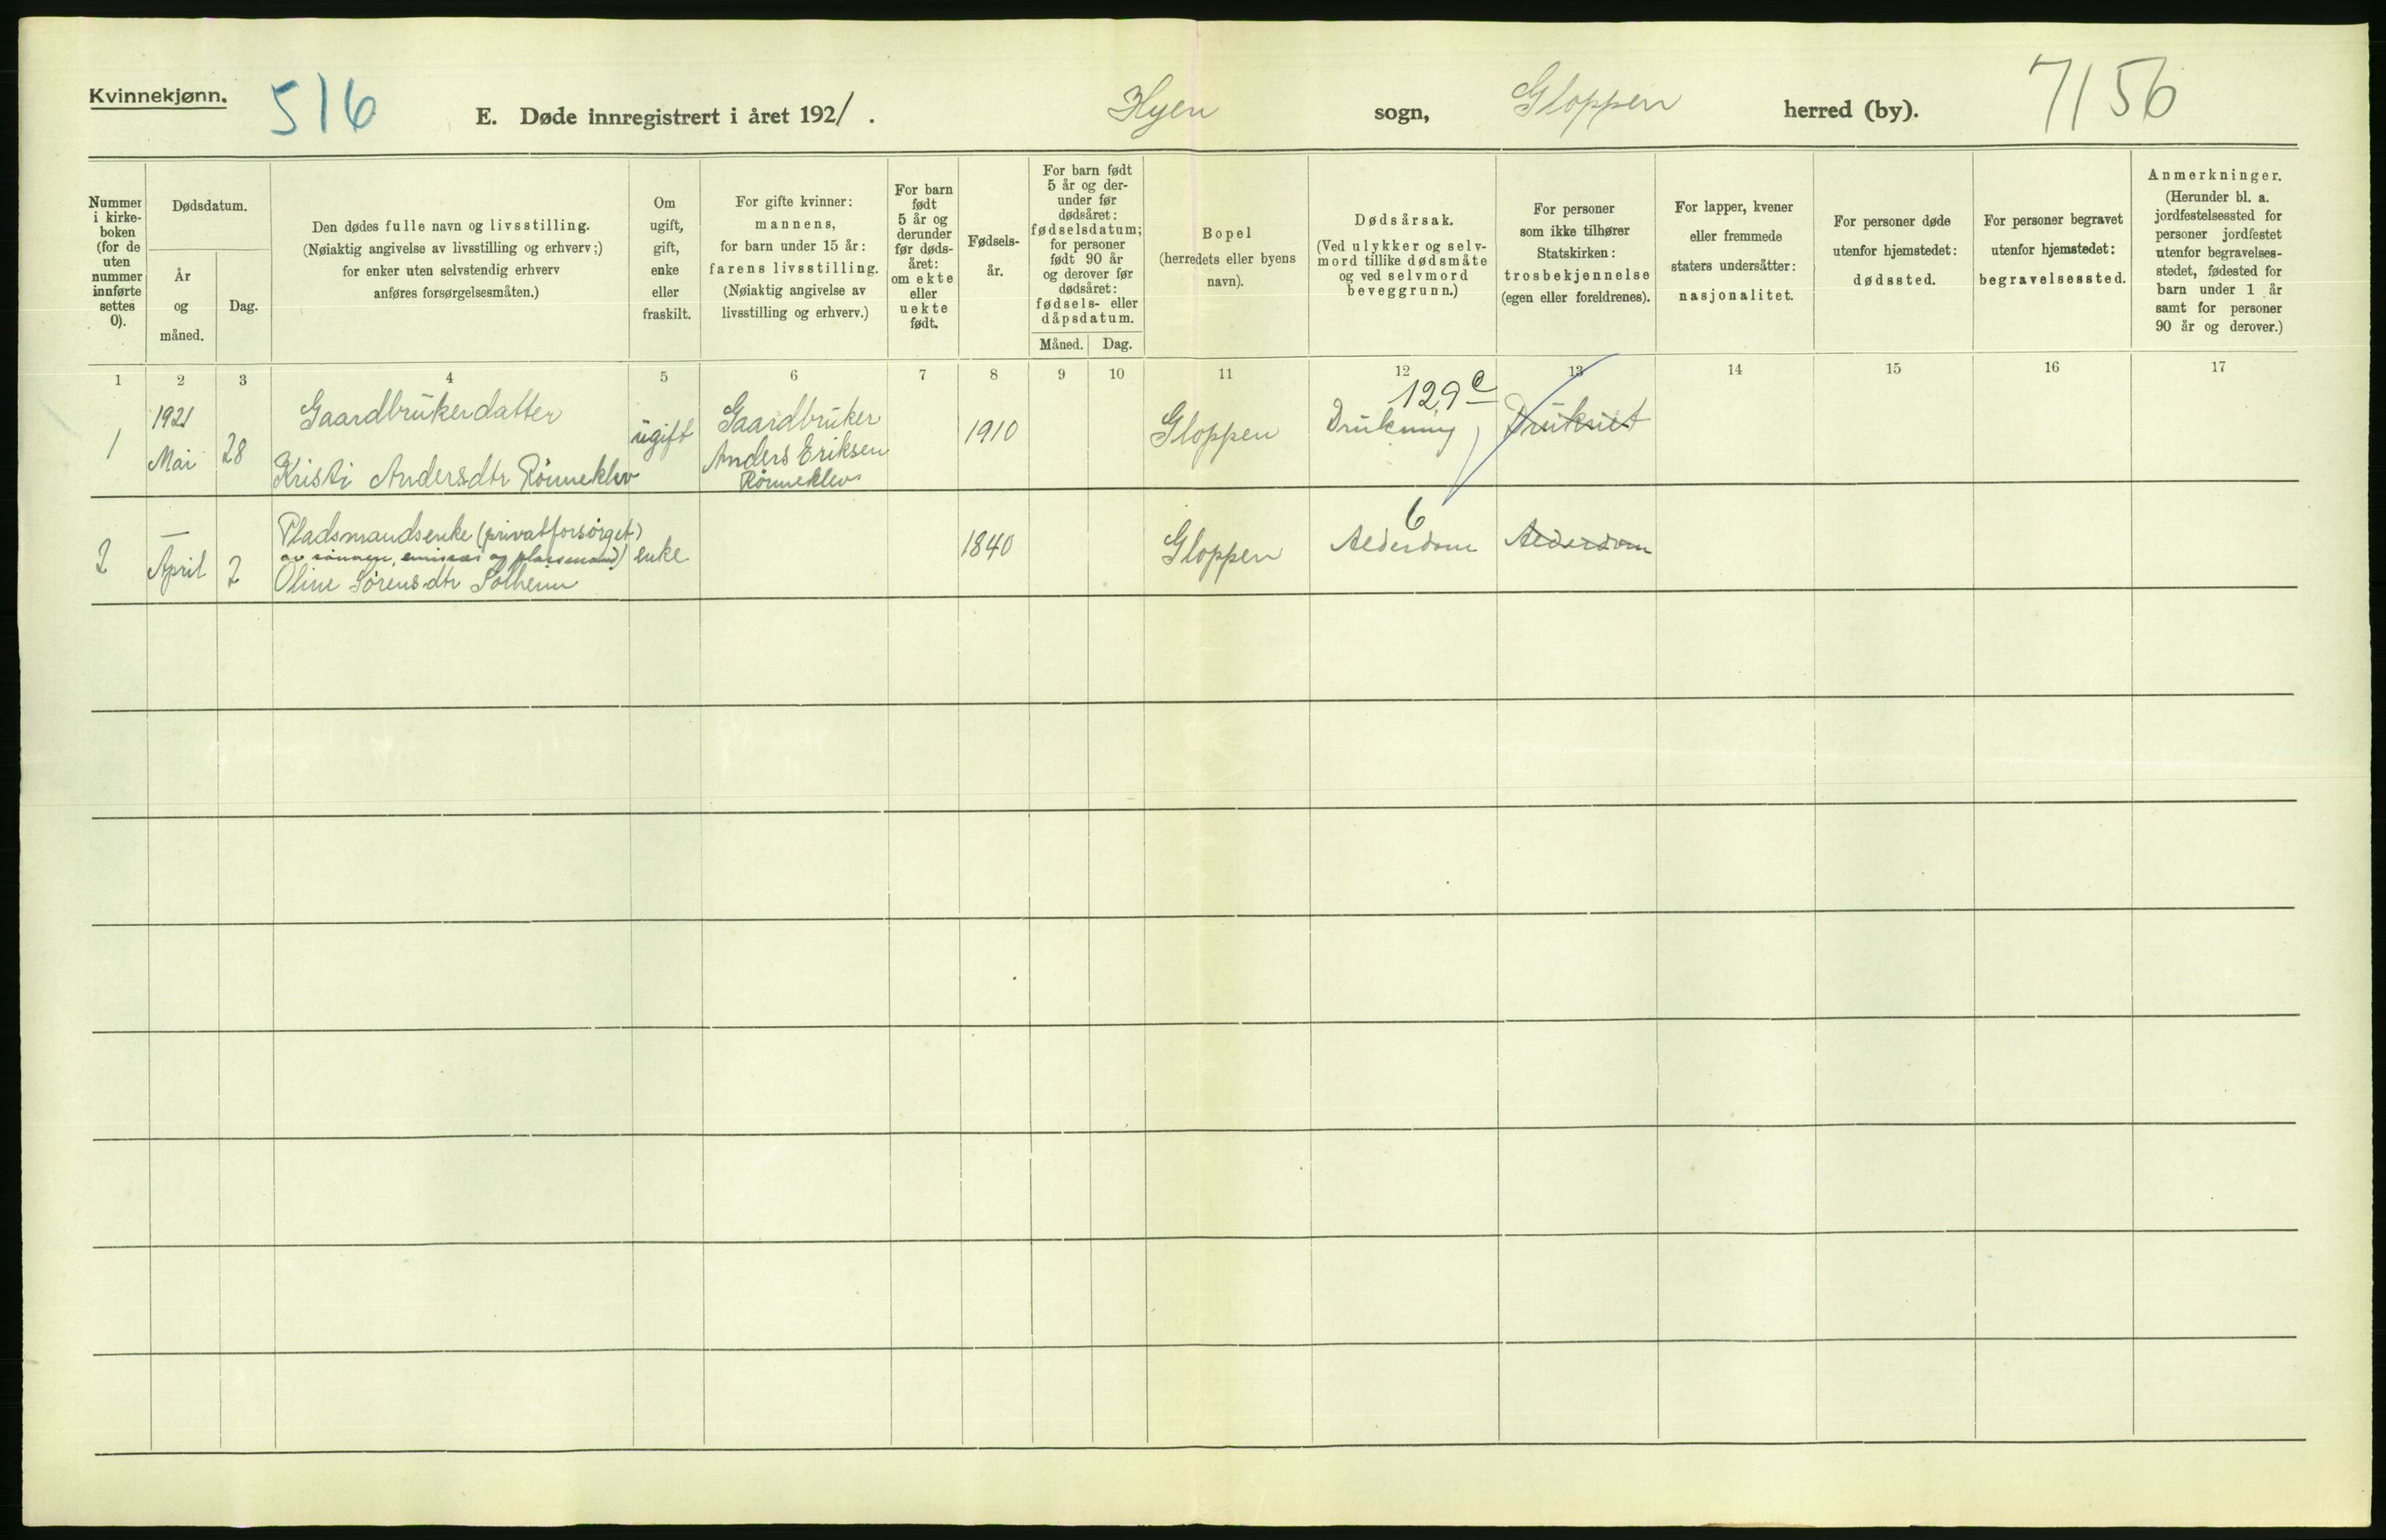 Kvinnekjønn.
516
E. Døde innregistrert i året 1921.
Hyen sogn, Gloppen herred (by).
7156
Nummer i kirke-
boken
(for de
uten
nummer
innførte
settes
0).
Dødsdatum.
År
og
måned.
Dag.
Den dødes fulle navn og livsstilling.
(Nøiaktig angivelse av livsstilling og erhverv;)
for enker uten selvstendig erhverv
anføres forsørgelsesmåten.)
Om
ugift,
gift,
enke
eller
fraskilt.
For gifte kvinner:
mannens,
for barn under 15 år:
farens livsstilling.
(Nøiaktig angivelse av
livsstilling og erhverv.)
For barn
født
5 år og
derunder
før døds-
året:
om ekte
eller
uekte
født.
Fødsels-
år.
For barn født
5 år og der-
under før
dødsåret:
fødselsdatum;
for personer
født 90 år
og derover før
dødsåret:
fødsels- eller
dåpsdatum.
Måned. Dag.
Bopel
(herredets eller byens
navn).
Dødsårsak.
(Ved ulykker og selv-
mord tillike dødsmåte
og ved selvmord
beveggrunn.)
For personer
som ikke tilhører
Statskirken:
trosbekjennelse
(egen eller foreldrenes).
For lapper, kvener
eller fremmede
staters undersåtter:
nasjonalitet.
For personer døde
utenfor hjemstedet:
dødssted.
For personer begravet
utenfor hjemstedet:
begravelsessted.
Anmerkninger.
(Herunder bl. a.
jordfestelsessted for
personer jordfestet
utenfor begravelses-
stedet, fødested for
barn under 1 år
samt for personer
90 år og derover.)
1 2 3 4 5 6 7 8 9 10 11 12 13 14 15 16 17
1
1921
Mai
28
Gaardbrukerdatter
Kristi Andersdtr Rönneklev
ugift
Gaardbruker
Anders Eriksen
Rönneklev
1910
Gloppen
129 c
Drukning
Druknet
2
—
April
2
Pladsmandsenke (privatforsörget)
av sönnen, emissær og plassmand)
Oline Sörensdtr Solheim
enke
1840
Gloppen
6
Alderdom
Alderdom